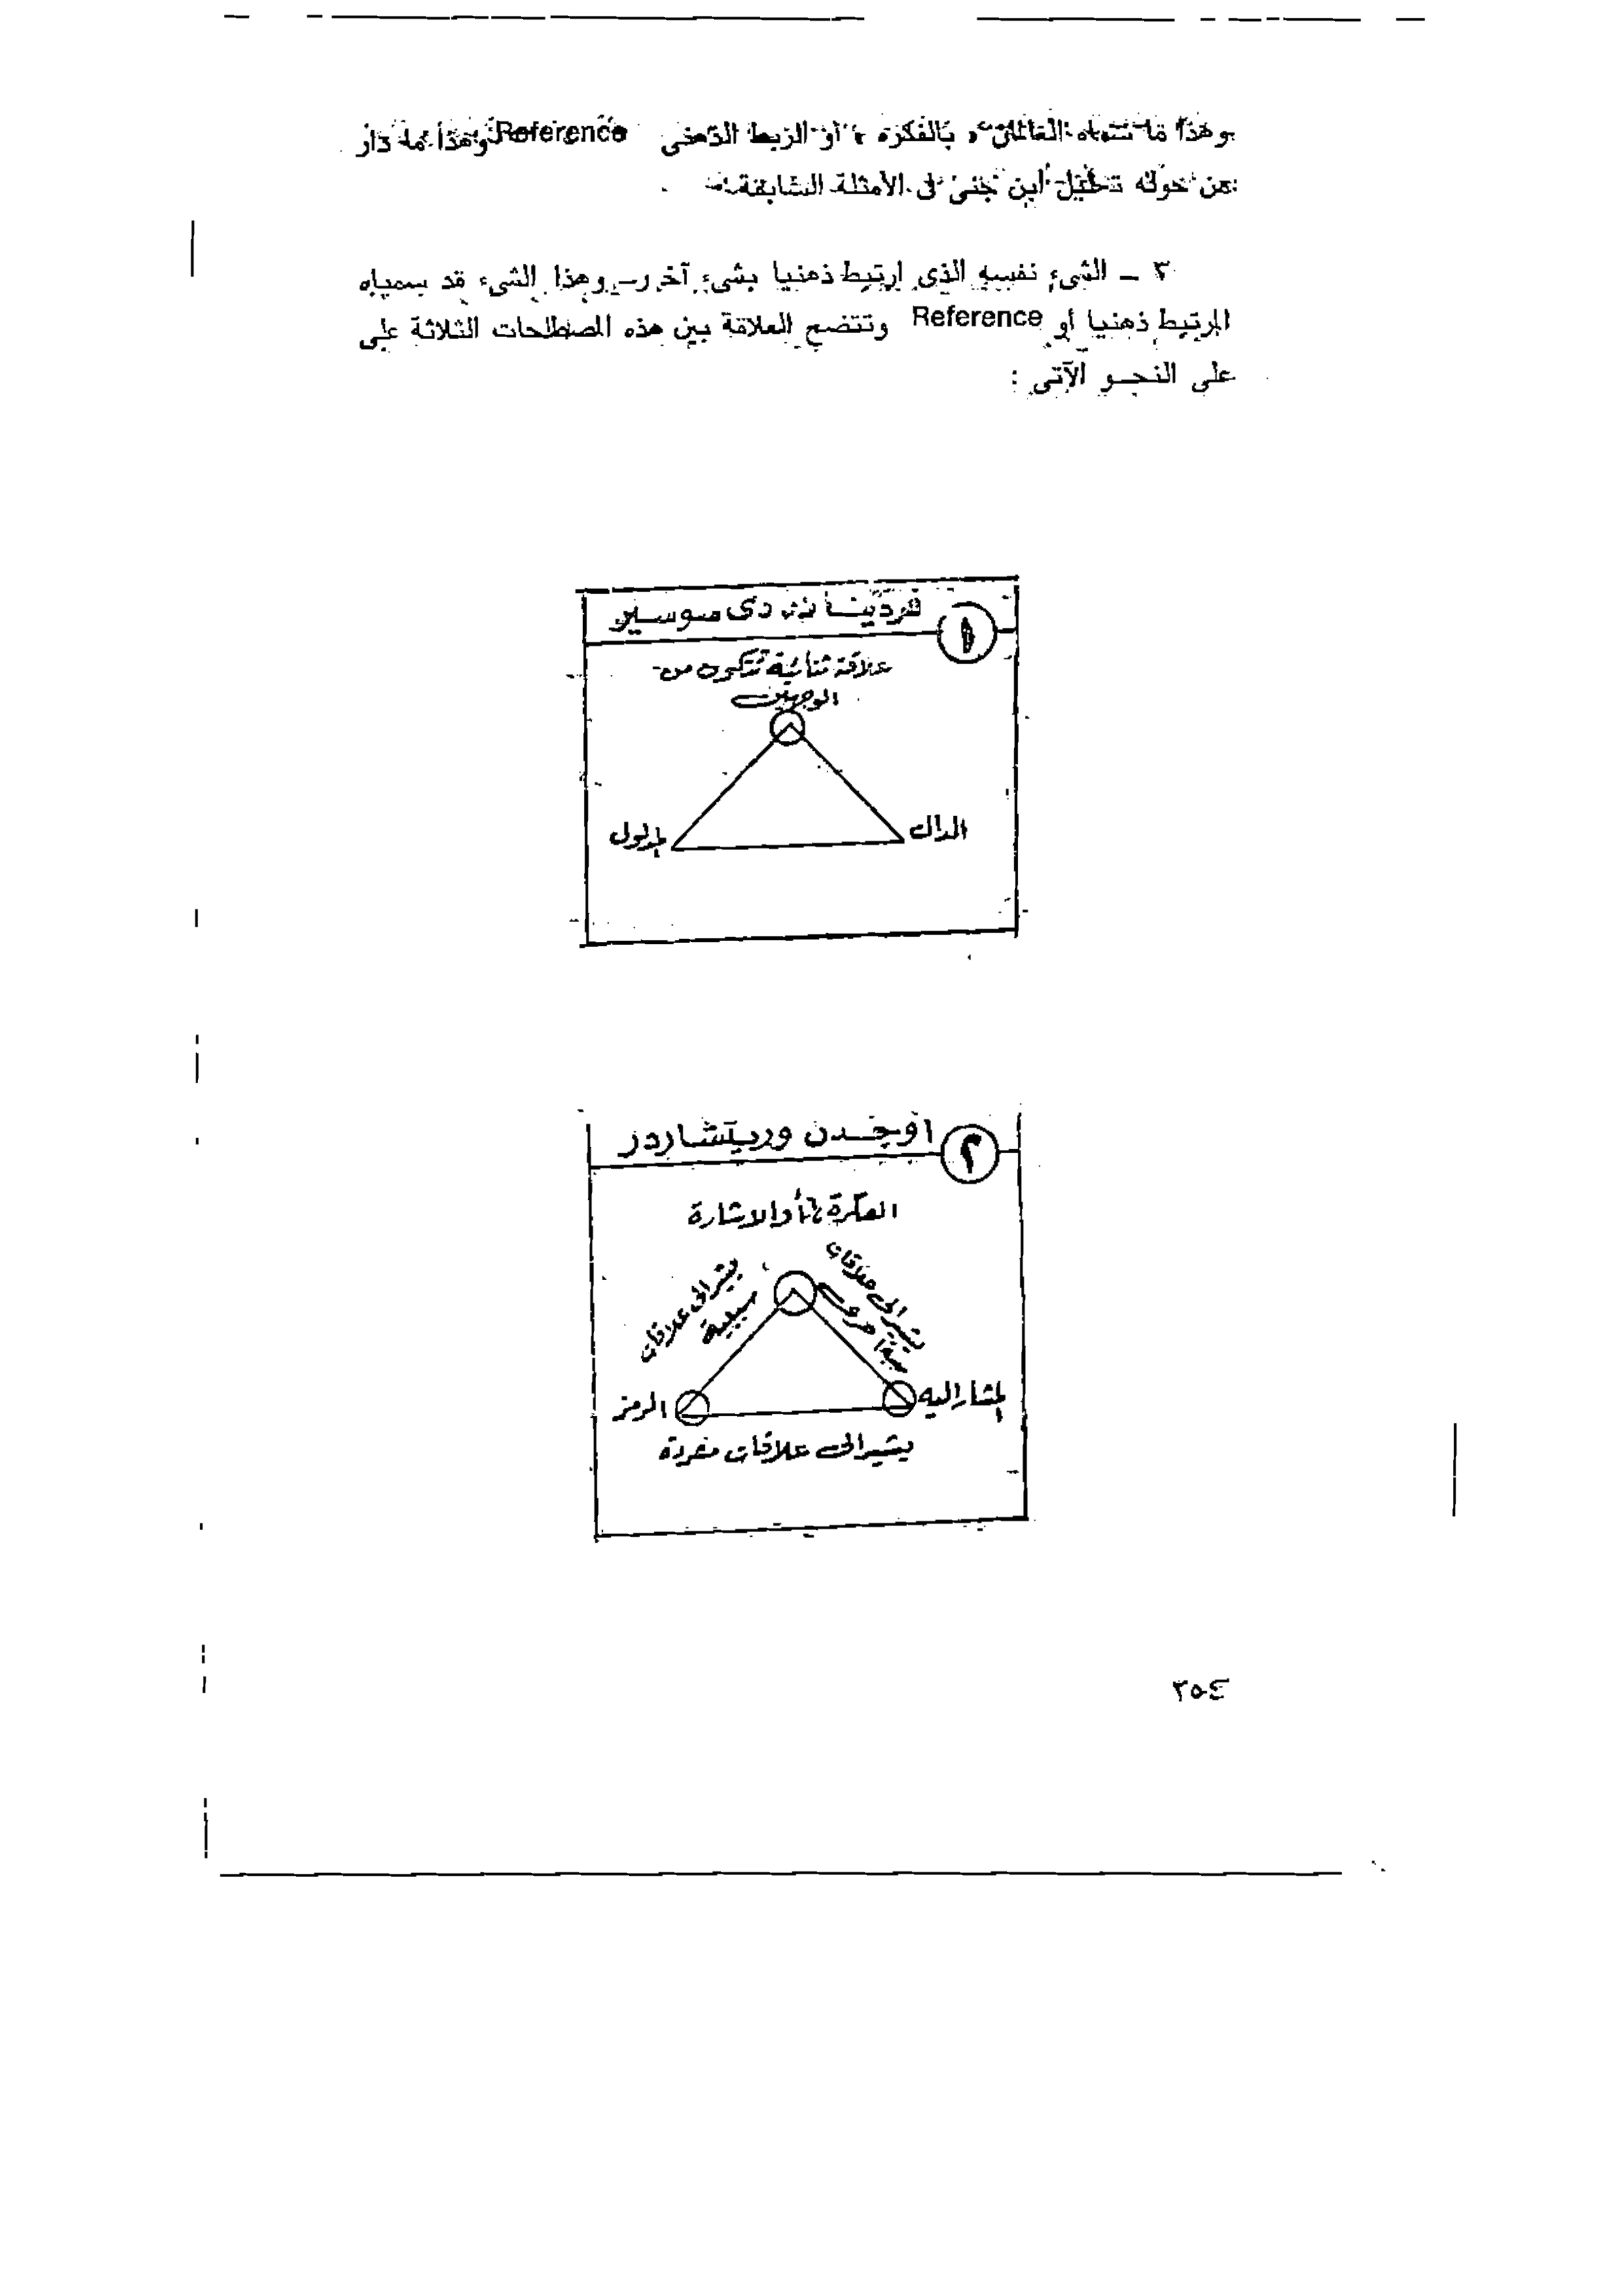 وهذا ما سماه العالمان « بالفكرة » أو الربط الذهنى Reference وهذا ما دار
من حوله تحليل ابن جنى فى الأمثلة السابقة .
٣ - الشىء نفسه الذى ارتبط ذهنيا بشىء آخر - وهذا الشىء قد سمياه
المرتبط ذهنيا أو Reference وتتضح العلاقة بين هذه المصطلحات الثلاثة على
على النحو الآتى :
١ فردينان دى سوسير
علاقة ثنائية تتكون من
الوجهين
الدال
المدلول
٢ اوجدن وريتشاردز
الفكرة أو الاشارة
يشير الى علاقات
يشير الى علاقات
سببية
المشار اليه
الرمز
يشير الى علاقات مفردة
٢٥٤